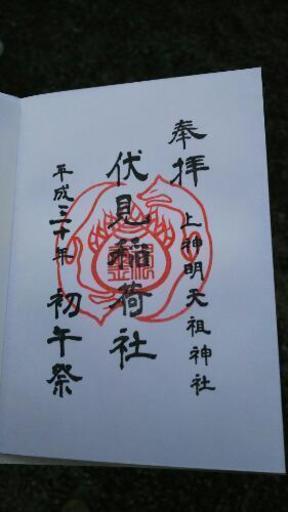 奉拝 上神明天祖神社
伏見稲荷社
平成三十年 初午祭